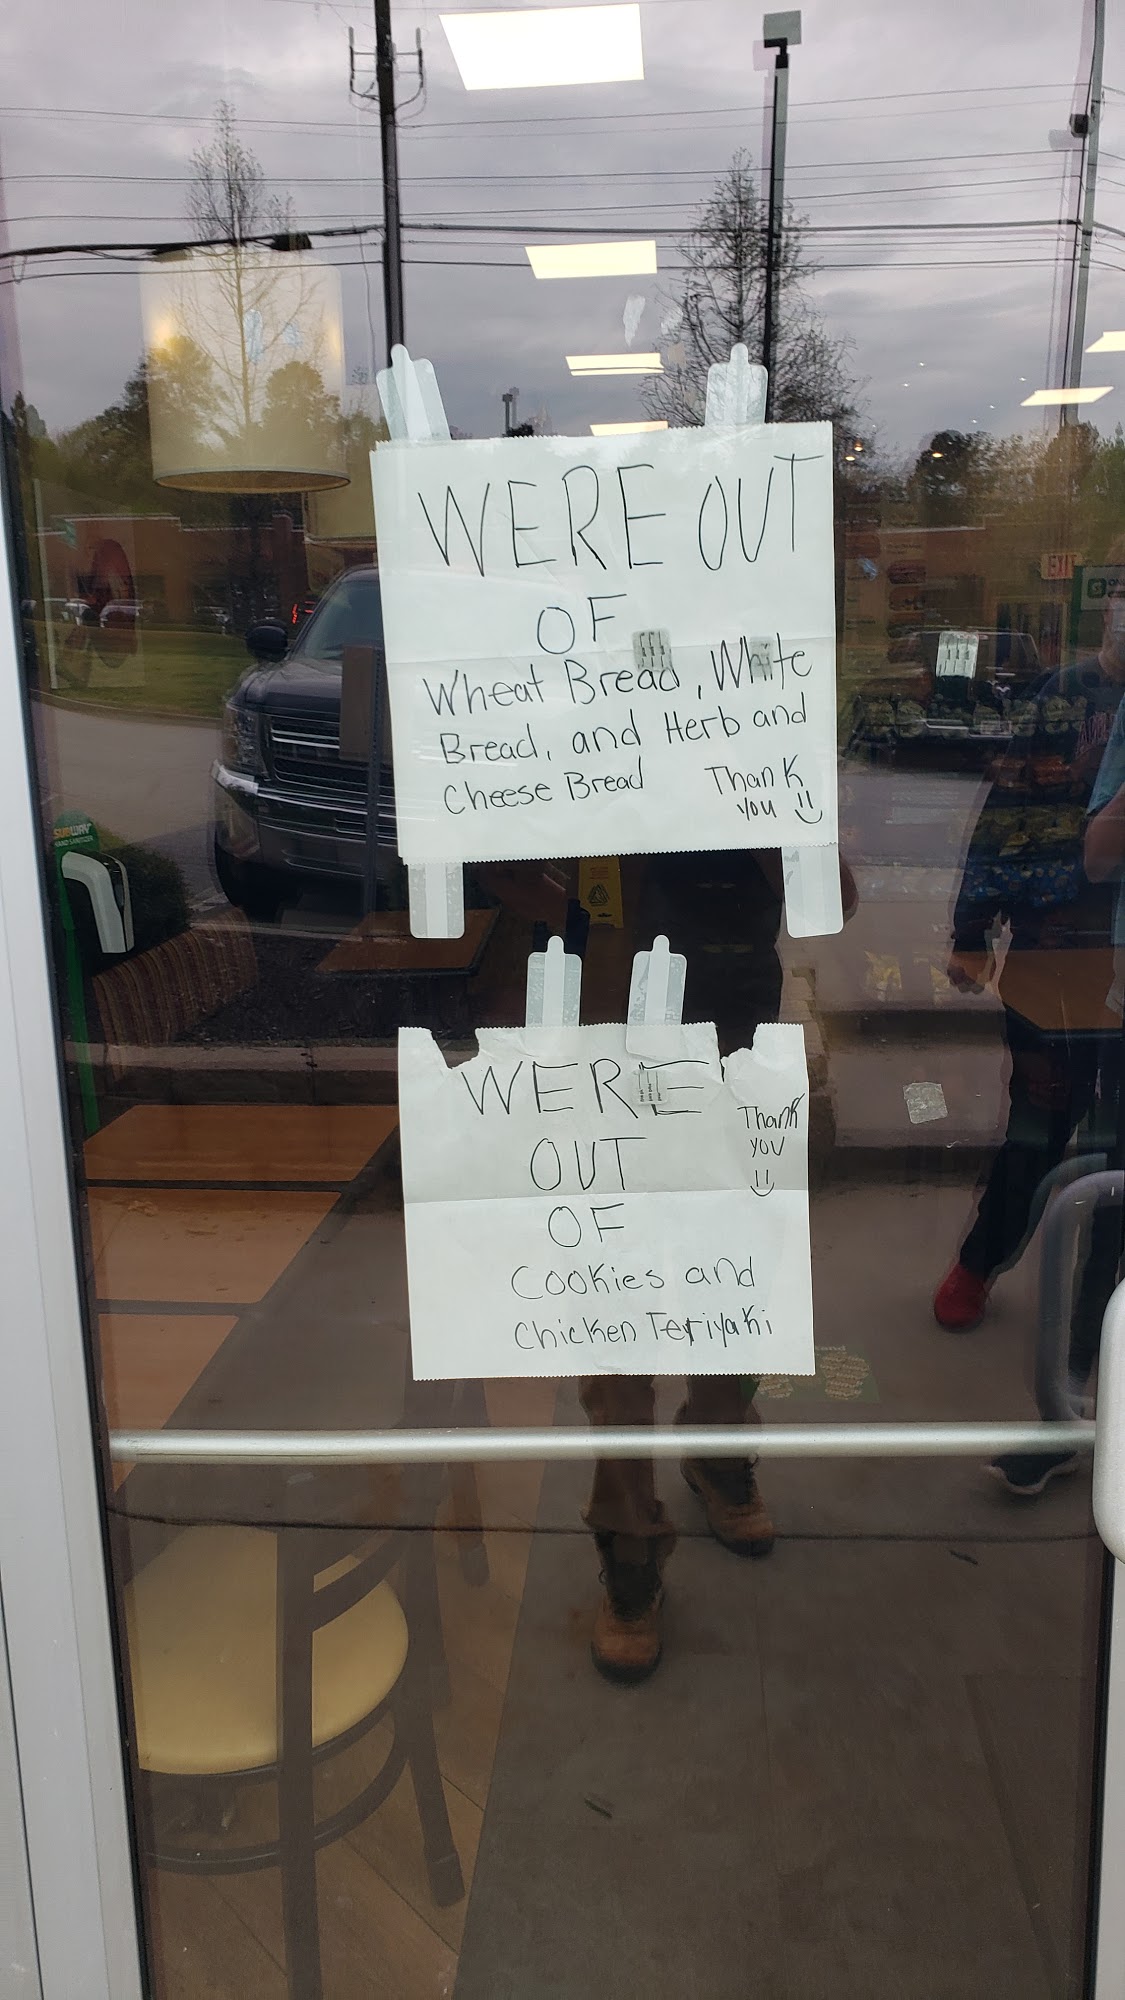 WERE OUT
OF
Wheat Bread, White
Bread, and Herb and
Cheese Bread
Thank
You
WERE
OUT
OF
Cookies and
Chicken Teriyaki
Thank
YOU
SUBWAY
HAND SANITIZER
EXIT